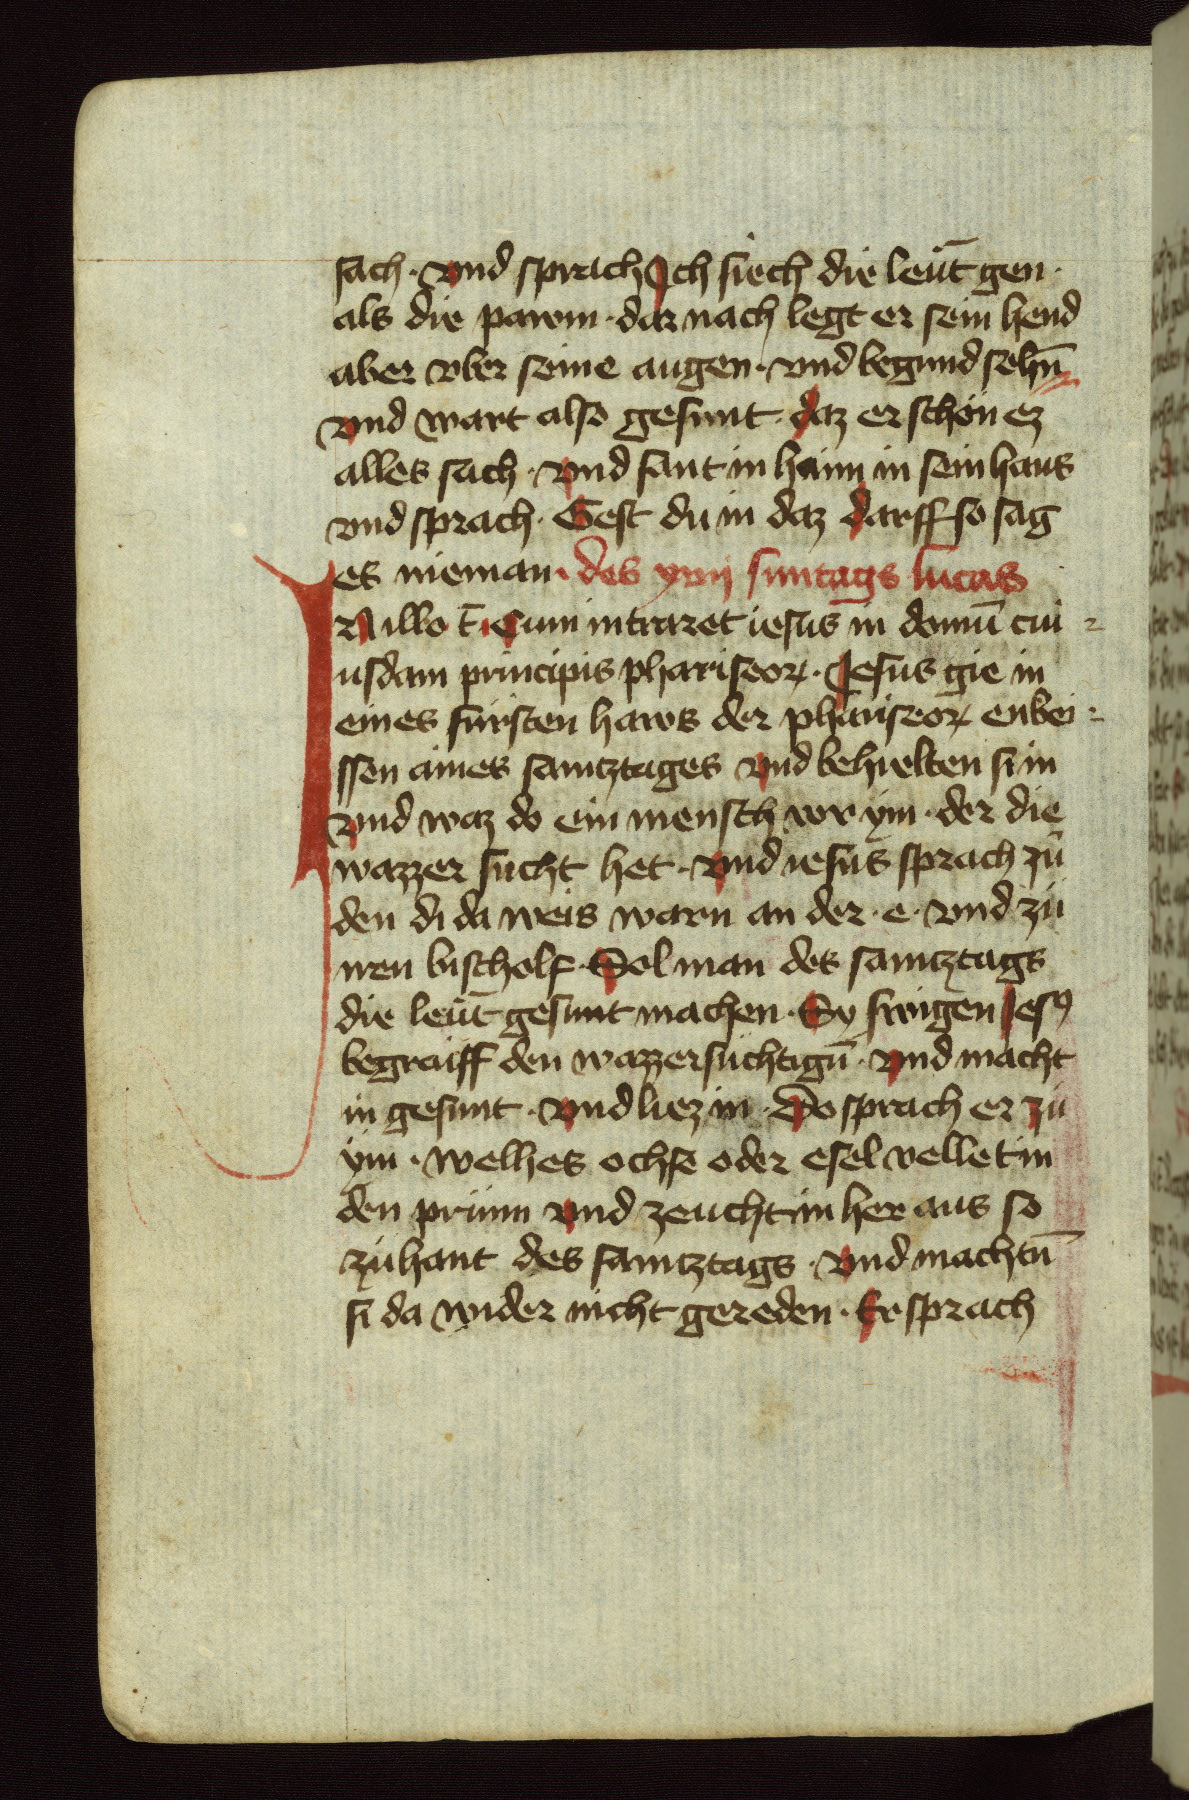 sach · vnd sprach Ich siech die leut̄ gen ·
als die pawm · dar nach legt er sein hend
aber vber seine augen · vnd begund sehn̄
vnd wart also gesunt · daz er schön ez
alles sach · vnd sant in haim in sein haus
vnd sprach · Gest du in daz darff so sag
es nieman · des xvij suntags lucas
IN illo t̄ Cum intraret iesus in domū cui
usdam principis phariseoꝝ · Jesus gie in
eines fürsten haws der phariseoꝝ enbei
ssen aines samztages vnd behielten si in
vnd waz do ein mensch vor ym · der die
wazzer sucht het · vnd iesus sprach zů
den di da weis warn an der · e · vnd zů
iren bischolf · Sol man des samztags
die leut̄ gesunt machen · Sy swigen Jesꝰ
begraiff den wazzersüchtigū · vnd macht
in gesunt · vnd liez in · Do sprach er zů
ym · welhes ochse oder esel vellet in
den prunn vnd zeucht in her aus so
zůhant des samztags · vnd machtū
si da wider nicht gereden · Er sprach